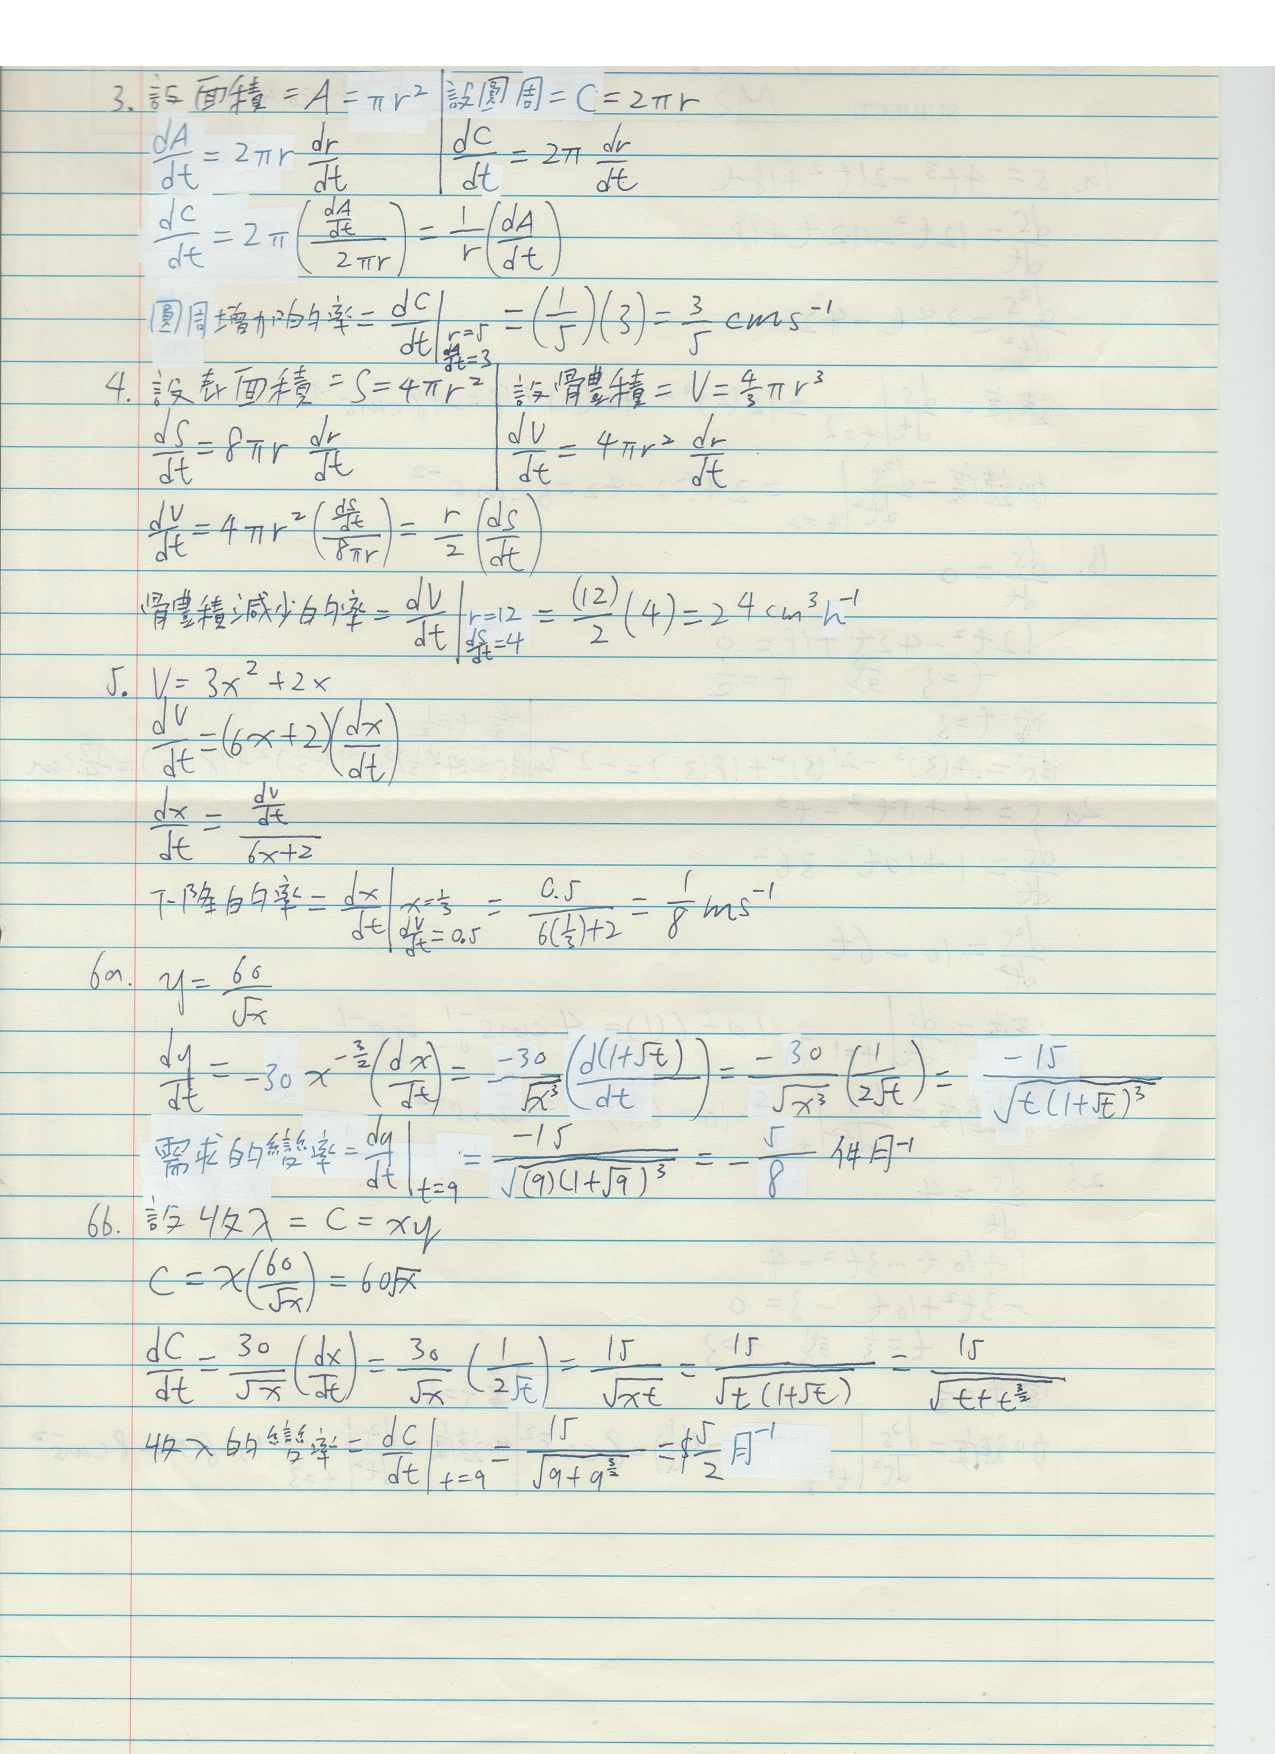 3. 設面積 = A = πr² | 設圓周 = C = 2πr
dA/dt = 2πr dr/dt | dC/dt = 2π dr/dt
dC/dt = 2π((dA/dt)/(2πr)) = 1/r (dA/dt)
圓周增加的率 = dC/dt |r=5, dA/dt=3 = (1/5)(3) = 3/5 cms⁻¹
4. 設表面積 = S = 4πr² | 設體積 = V = 4/3 πr³
dS/dt = 8πr dr/dt | dV/dt = 4πr² dr/dt
dV/dt = 4πr² ((dS/dt)/(8πr)) = r/2 (dS/dt)
體積減少的率 = dV/dt |r=12, dS/dt=4 = (12)/2 (4) = 24cm³h⁻¹
5. V = 3x² + 2x
dV/dt = (6x+2)(dx/dt)
dx/dt = (dV/dt)/(6x+2)
下降的率 = dx/dt |x=1/3, dV/dt=0.5 = 0.5/(6(1/3)+2) = 1/8 ms⁻¹
6a. y = 60/√x
dy/dt = -30x^(-3/2) (dx/dt) = -30/√x³ (d(1+√t)/dt) = -30/√x³ (1/(2√t)) = -15/√(t(1+√t)³)
需求的變率 = dy/dt |t=9 = -15/√((9)(1+√9)³) = -5/8 件月⁻¹
6b. 設收入 = C = xy
C = x(60/√x) = 60√x
dC/dt = 30/√x (dx/dt) = 30/√x (1/(2√t)) = 15/√(xt) = 15/√(t(1+√t)) = 15/√(t+t^(3/2))
收入的變率 = dC/dt |t=9 = 15/√(9+9^(3/2)) = $5/2 月⁻¹